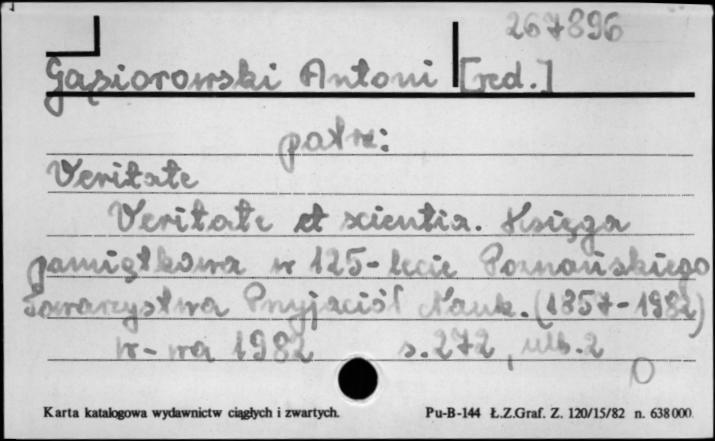 267896
Gąsiorowski Antoni [red.]
patrz:
Veritate
Veritate et scientia. Księga
pamiątkowa w 125-lecie Poznańskiego
Towarzystwa Przyjaciół Nauk. (1857-1982)
W-wa 1982 s. 272, ulb. 2
Karta katalogowa wydawnictw ciągłych i zwartych. Pu-B-144 Ł.Z.Graf. Z. 120/15/82 n. 638000